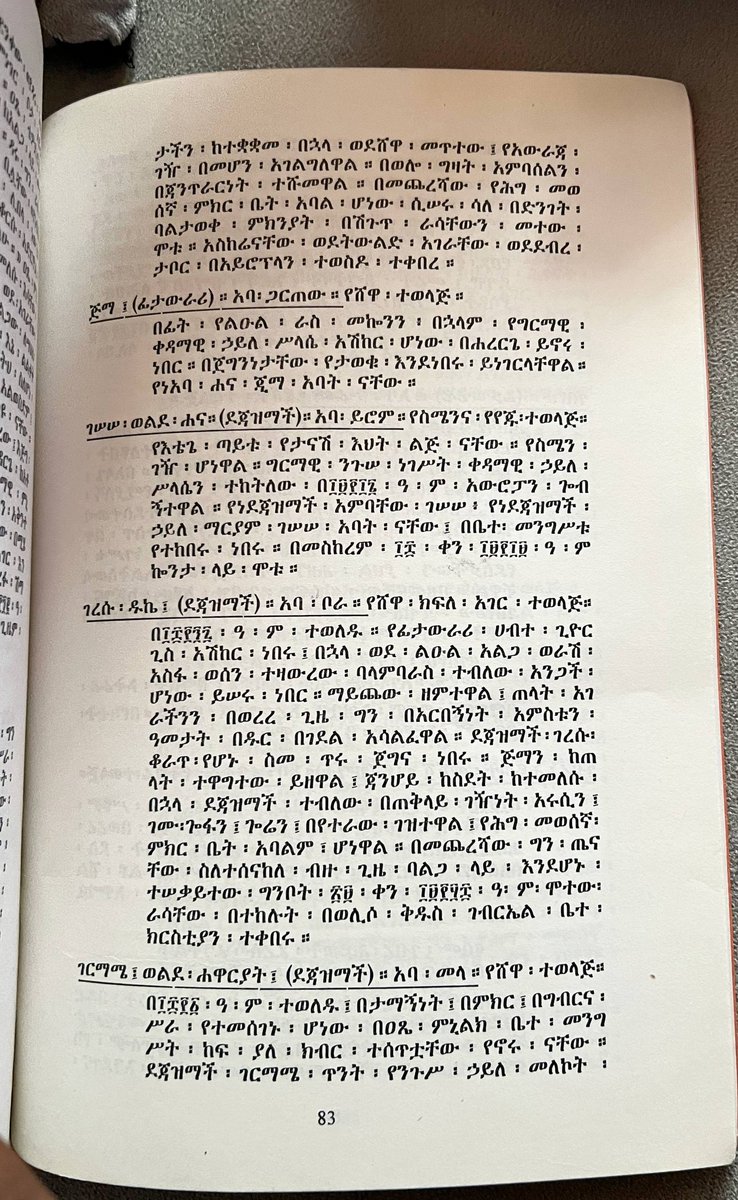 ታችን ፡ ከተቋቋመ ፡ በኋላ ፡ ወደሸዋ ፡ መጥተው ፤ የአውራጃ ፡
ገዥ ፡ በመሆን ፡ አገልግለዋል ። በወሎ ፡ ግዛት ፡ አምባሰልን ፡
በጃንጥራርነት ፡ ተሹመዋል ። በመጨረሻው ፡ የሕግ ፡ መወ
ሰኛ ፡ ምክር ፡ ቤት ፡ አባል ፡ ሆነው ፡ ሲሠሩ ፡ ሳለ ፡ በድንገት ፡
ባልታወቀ ፡ ምክንያት ፡ በሽጉጥ ፡ ራሳቸውን ፡ መተው ፡
ሞቱ ። አስከሬናቸው ፡ ወደትውልድ ፡ አገራቸው ፡ ወደደብረ ፡
ታቦር ፡ በአይሮፕላን ፡ ተወስዶ ፡ ተቀበረ ።
ጅማ ፤ (ፊታውራሪ) ። አባ፡ ጋርጠው ። የሸዋ ፡ ተወላጅ ።
በፊት ፡ የልዑል ፡ ራስ ፡ መኰንን ፡ በኋላም ፡ የግርማዊ ፡
ቀዳማዊ ፡ ኃይለ ፡ ሥላሴ ፡ አሽከር ፡ ሆነው ፡ በሐረርጌ ፡ ይኖሩ ፡
ነበር ። በጀግንነታቸው ፡ የታወቁ ፡ እንደነበሩ ፡ ይነገርላቸዋል ።
የነአባ ፡ ሐና ፡ ጂማ ፡ አባት ፡ ናቸው ።
ገሠሠ ፡ ወልደ ፡ ሐና። (ደጃዝማች) ። አባ፡ ይሮም ። የስሜንና ፡ የየጁ፡ተወላጅ።
የእቴጌ ፡ ጣይቱ ፡ የታናሽ ፡ እህት ፡ ልጅ ፡ ናቸው ። የስሜን ፡
ገዥ ፡ ሆነዋል ። ግርማዊ ፡ ንጉሠ ፡ ነገሥት ፡ ቀዳማዊ ፡ ኃይለ ፡
ሥላሴን ፡ ተከትለው ፡ በ፲፱፻፲፯ ፡ ዓ ፡ ም ፡ አውሮፓን ፡ ጐብ
ኝተዋል ። የነደጃዝማች ፡ አምባቸው ፡ ገሠሠ፤ የነደጃዝማች ፡
ኃይለ ፡ ማርያም ፡ ገሠሠ ፡ አባት ፡ ናቸው ፤ በቤተ፡ መንግሥቱ
የተከበሩ ፡ ነበሩ ። በመስከረም ፡ ፲፰ ፡ ቀን ፡ ፲፱፻፲፱ ፡ ዓ ፡ ም
ኰንታ ፡ ላይ ፡ ሞቱ ።
ገረሱ ፡ ዱኬ ፤ (ደጃዝማች) ። አባ ፡ ቦራ ። የሸዋ ፡ ክፍለ ፡ አገር ፡ ተወላጅ።
ዓ ፡ ም ፡ ተወለዱ ። የፊታውራሪ ፡ ሀብተ ፡ ጊዮር
ጊስ ፡ አሽከር ፡ ነበሩ ፤ በኋላ ፡ ወደ ፡ ልዑል ፡ አልጋ ፡ ወራሽ ፡
አስፋ ፡ ወሰን ፡ ተዛውረው ፡ ባላምባራስ ፡ ተብለው ፡ አንጋች ፡
ሆነው ፡ ይሠሩ ፡ ነበር ። ማይጨው ፡ ዘምተዋል ፤ ጠላት ፡ አገ
ራችንን ፡ በወረረ ፡ ጊዜ ፡ ግን ፡ በአርበኝነት ፡ አምስቱን ፡
ዓመታት ፡ በዱር ፡ በገደል ፡ አሳልፈዋል ። ደጃዝማች፡ ገረሱ፡
ቆራጥ፡የሆኑ ፡ ስመ ፡ ጥሩ ፡ ጀግና ፡ ነበሩ ። ጅማን ፡ ከጠ
ላት ፡ ተዋግተው ፡ ይዘዋል ፤ ጃንሆይ ፡ ከስደት ፡ ከተመለሱ ፡
በኋላ ፡ ደጃዝማች ፡ ተብለው ፡ በጠቅላይ ፡ ገዥነት ፡ አሩሲን ፤
ገሙ፡ጐፋን ፤ ጐሬን ፤ በየተራው ፡ ገዝተዋል ፤ የሕግ ፡ መወሰኛ፡
ምክር ፡ ቤት ፡ አባልም ፡ ሆነዋል ። በመጨረሻው ፡ ግን ፡ ጤና
ቸው ፡ ስለተሰናከለ ፡ ብዙ ፡ ጊዜ ፡ ባልጋ ፡ ላይ ፡ እንደሆኑ ፡
ተሠቃይተው ፡ ግንቦት ፡ ቀን ፡ ዓ፡ ም፡ ሞተው፡
ራሳቸው ፡ በተከሉት ፡ በወሊሶ ፡ ቅዱስ ፡ ገብርኤል ፡ ቤተ ፡
ክርስቲያን ፡ ተቀበሩ ።
ገርማሜ ፤ ወልደ ፡ ሐዋርያት ፤ (ደጃዝማች) ። አባ ፡ መላ ። የሸዋ ፡ ተወላጅ።
ዓ ፡ ም ፡ ተወለዱ ፤ በታማኝነት ፤ በምክር ፤ በግብርና ፡
ሥራ ፡ የተመሰገኑ ፡ ሆነው ፡ በዐጼ ፡ ምኒልክ ፡ ቤተ ፡ መንግ
ሥት ፡ ከፍ ፡ ያለ ፡ ክብር ፡ ተሰጥቷቸው ፡ የኖሩ ፡ ናቸው ።
ደጃዝማች ፡ ገርማሜ ፡ ጥንት ፡ የንጉሥ ፡ ኃይለ ፡ መለኮት ፡
83